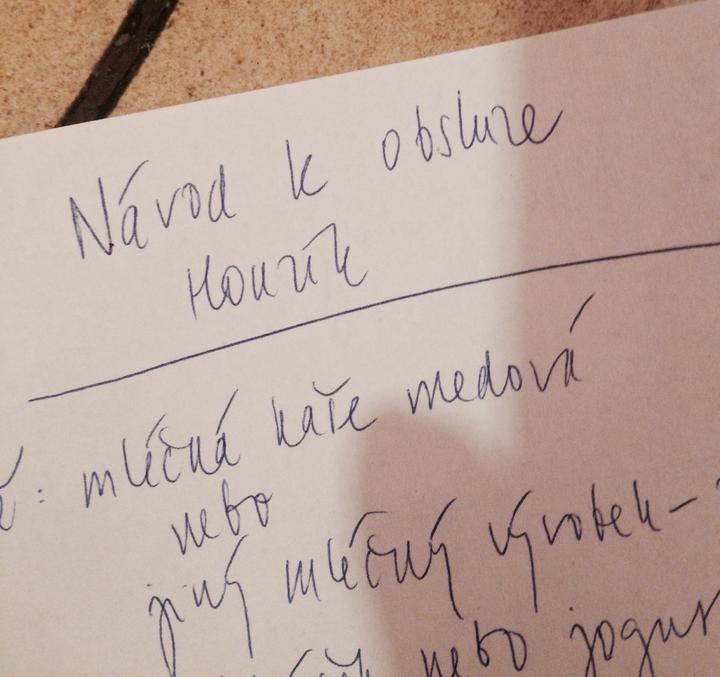 Návod k obsluze
Honzík
mléčná kaše medová
nebo
jiný mléčný výrobek -
nebo jogurt